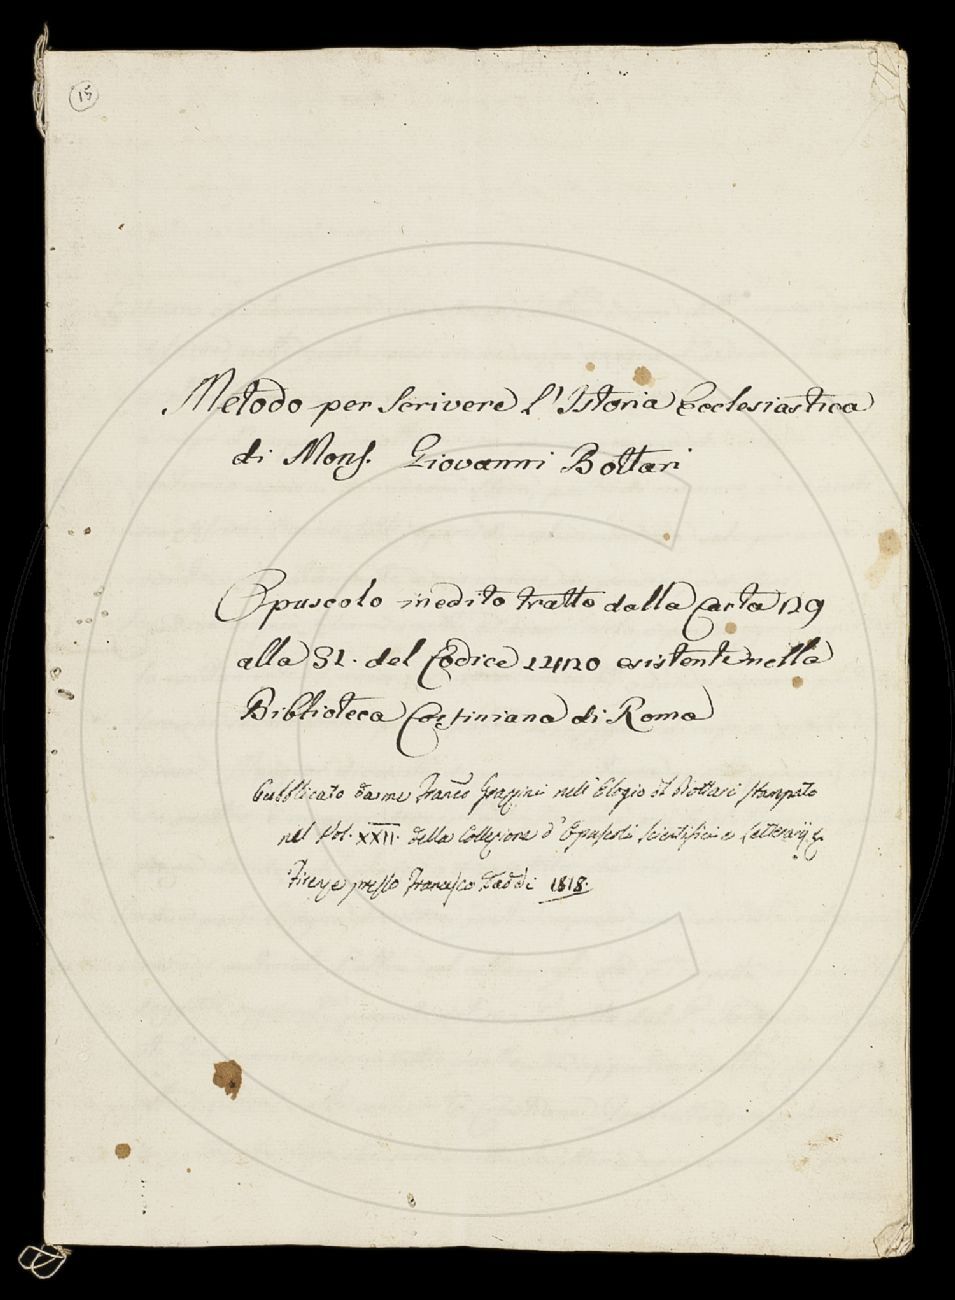 15
Metodo per Scrivere l'Istoria Ecclesiastica
di Mons. Giovanni Bottari
Opuscolo inedito tratto dalla Carta
alla del Codice esistente nella
Biblioteca Corsiniana di Roma
Pubblicato da me Franco Grazzini nell'Elogio di Bottari stampato
nel Vol. XXII. della Collezione d'Opuscoli Scientifici e Letterarij &
Firenze presso Francesco Daddi 1818.